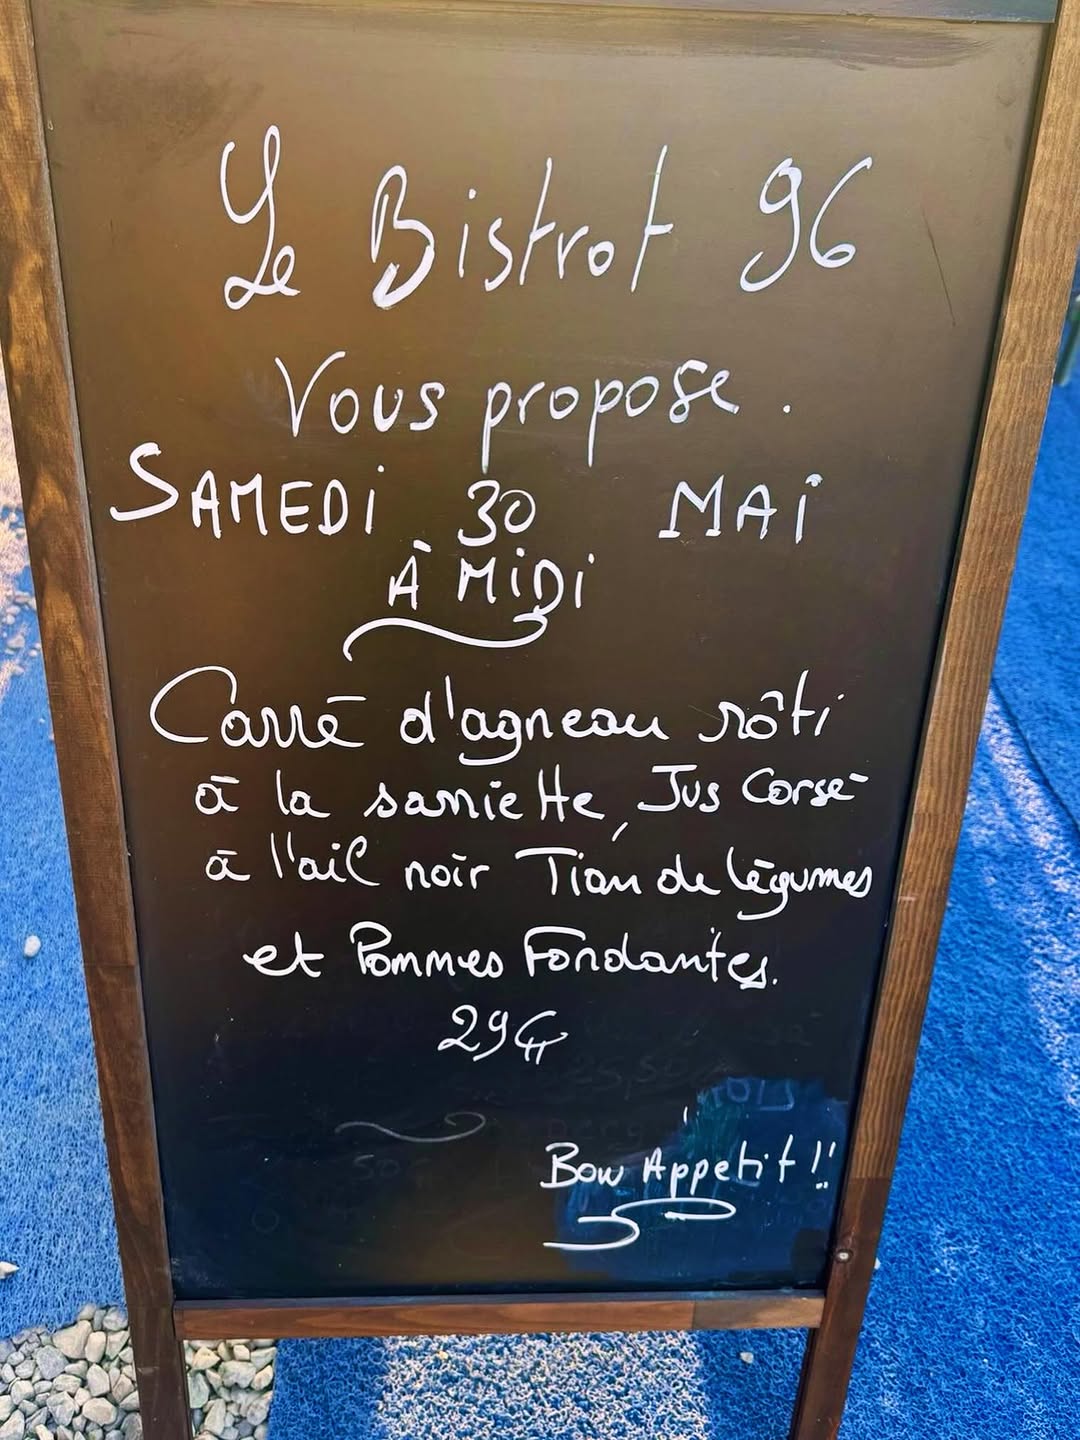 Le Bistrot 96
Vous propose.
SAMEDi 30 MAi
À MiDi
Carré d'agneau rôti
à la sarriette, Jus Corsé
à l'ail noir Tian de légumes
et Pommes Fondantes.
29€
Bon Appétit !!